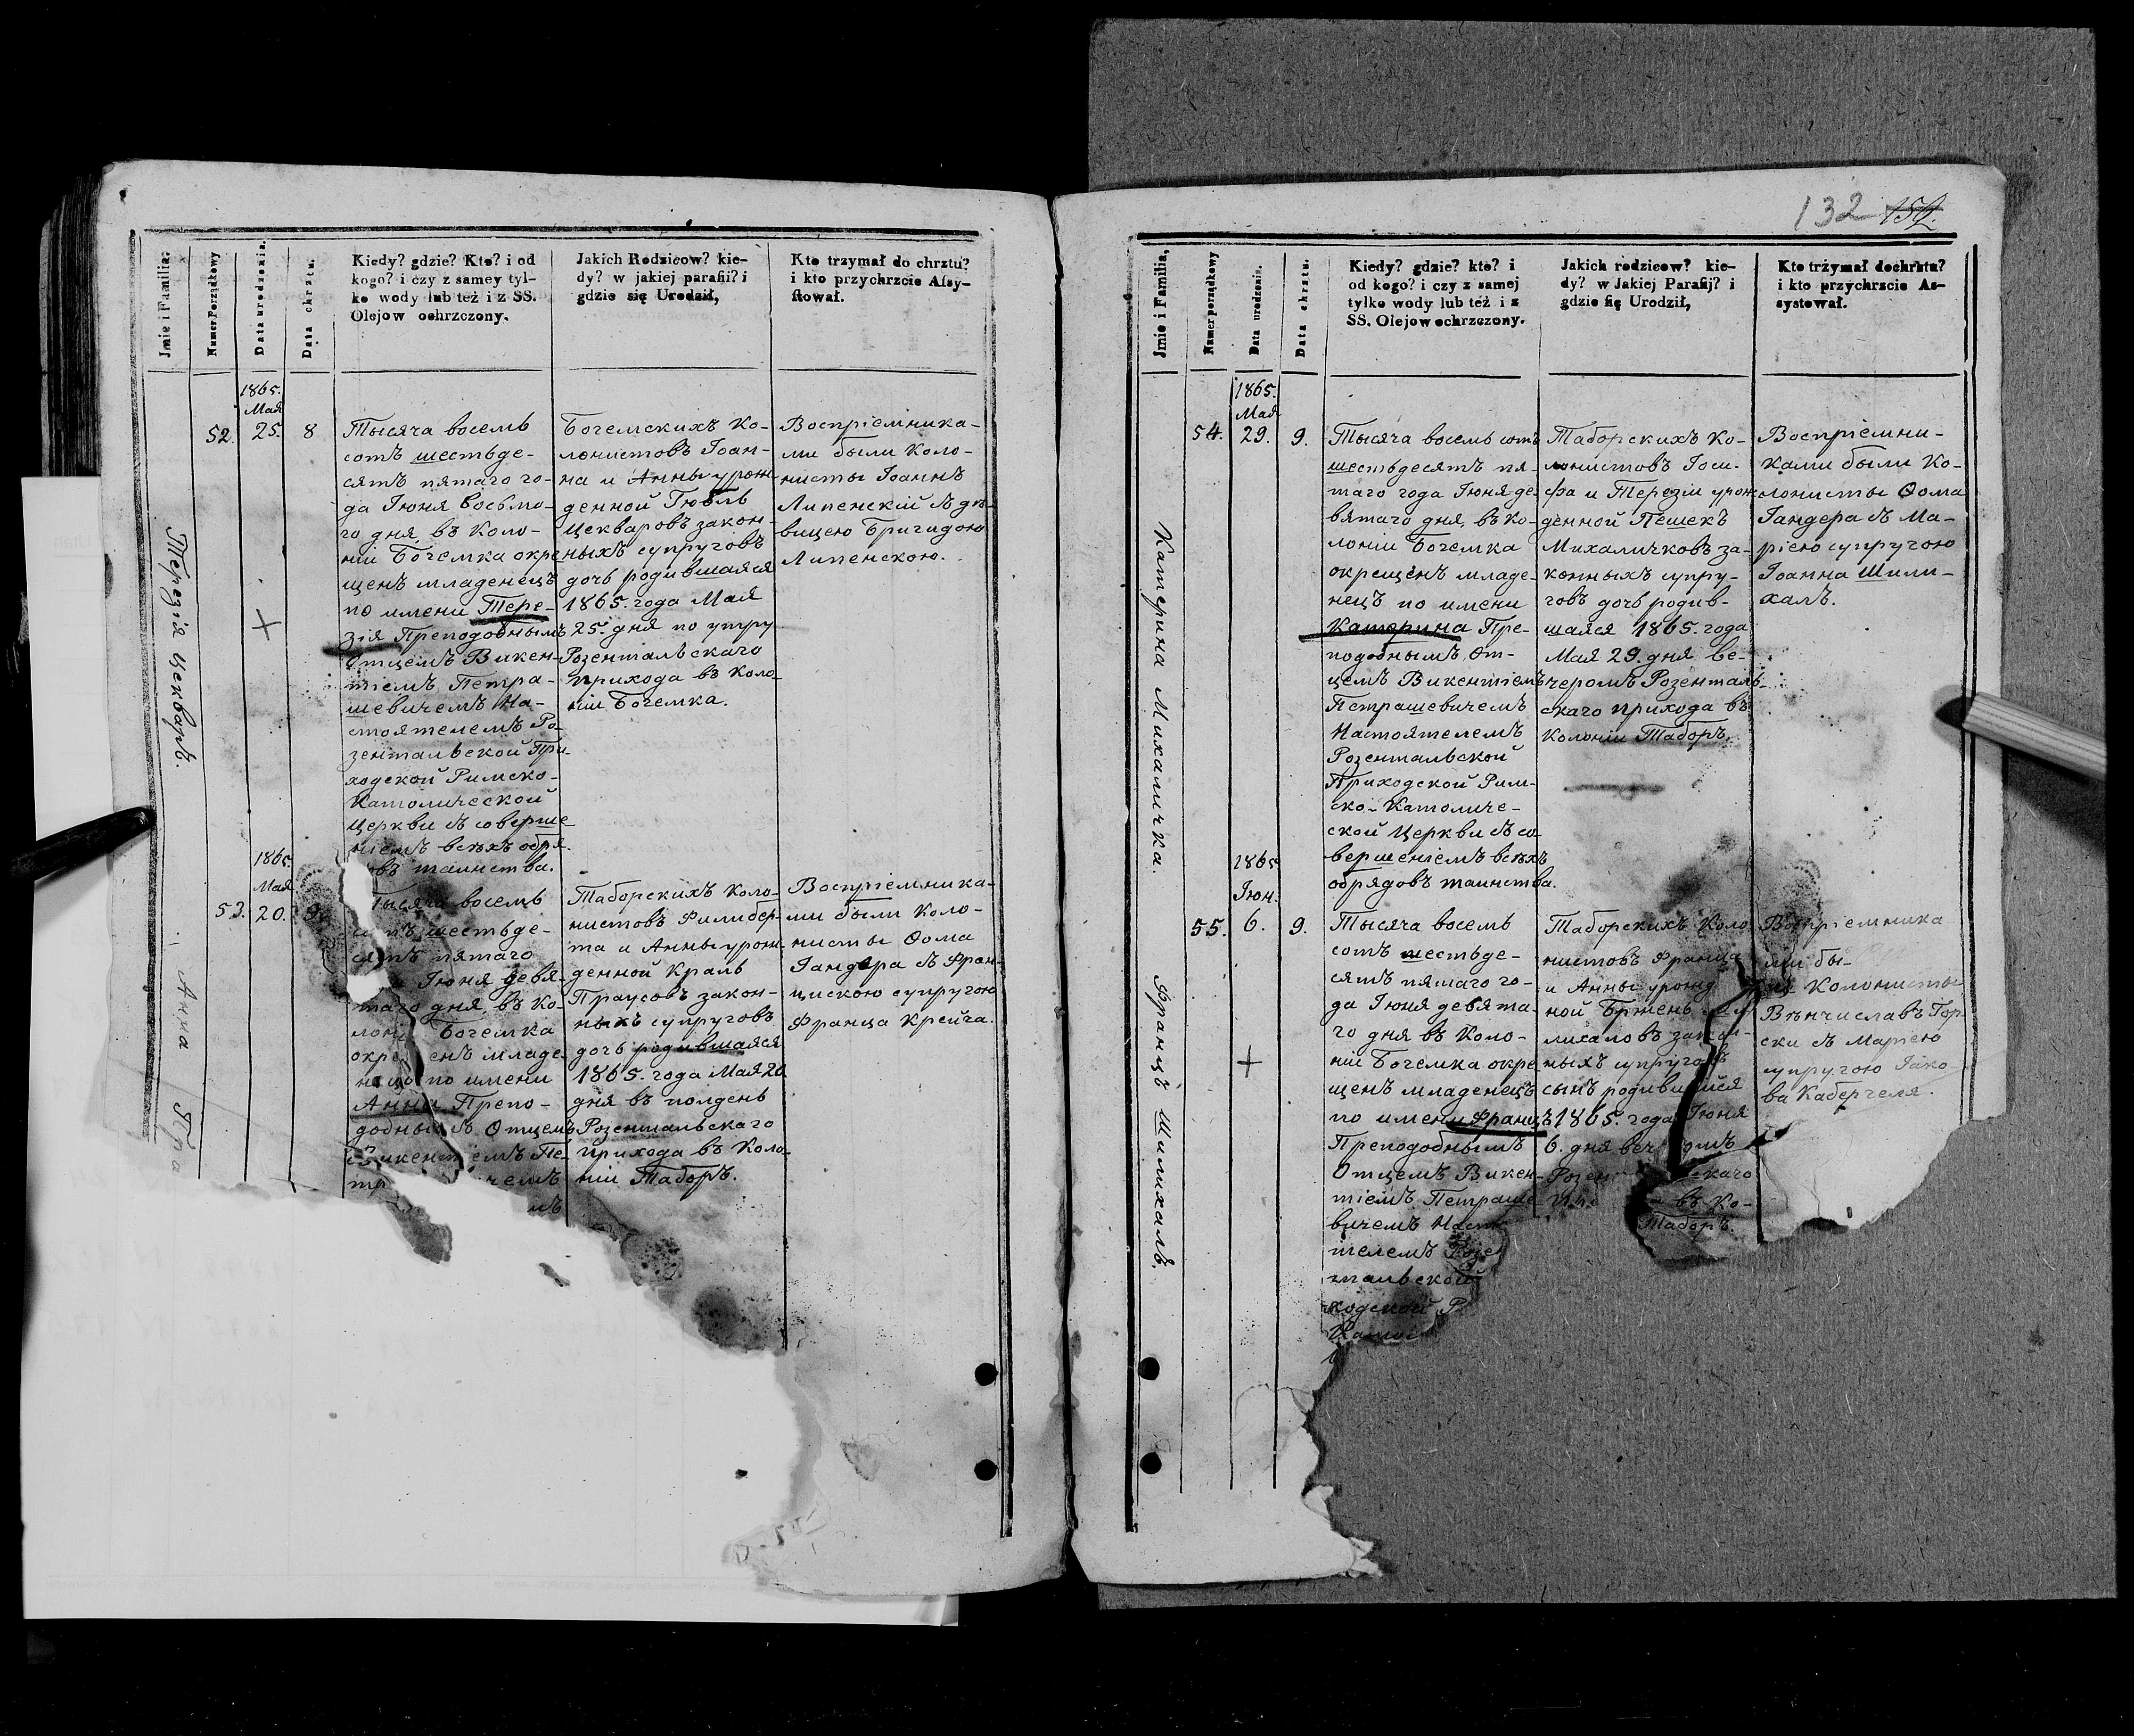 Jmie i Familia.
Numer Porządkowy
Data urodzenia.
Data chrztu.
Kiedy? gdzie? Kto? i od
kogo? i czy z samey tyl-
ko wody lub też i z SS.
Olejow ochrzczony.
Jakich Rodzicow? kie-
dy? w jakiej parafii? i
gdzie się Urodził,
Kto trzymał do chrztu?
i kto przychrzcie Assy-
stował.
Терезія Цекваръ.
1865.
Мая
52. 25. 8
Тысяча восемь
сотъ шестьде-
сятъ пятаго го-
да Іюня восьма-
го дня, въ Коло-
ніи Богемка окре
щенъ младенецъ
по имени Тере-
зія Преподобнымъ
Отцемъ Викен-
тіемъ Петра-
шевичемъ На-
стоятелемъ Ро-
зентальской При
ходской Римско-
Католической
Церкви съ соверше
ніемъ всѣхъ обря
овъ таинства.
Богемскихъ Ко-
лонистовъ Іоан-
на и Анны урож-
денной Гюбль
Цекваровъ закон-
ныхъ супруговъ
дочь родившаяся
1865. года Мая
25. дня по утру
Розентальскаго
прихода въ Коло-
ніи Богемка.
Воспріемника-
ми были Коло-
нисты Іоаннъ
Липенскій съ дѣ-
вицею Бригидою
Липенскою.
Анна Пра
1865.
Мая
53. 20. 9.
Тысяча восемь
сотъ шестьде-
сятъ пятаго
Іюня девя-
таго дня, въ Ко-
лоні Богемка
окре енъ младе-
нецъ по имени
Анна Препо-
добнымъ Отцемъ
Викент емъ Пе-
тр чемъ
мъ
Таборскихъ Коло-
нистовъ Филибер-
та и Анны урож-
денной Краль
Праусовъ закон-
ныхъ супруговъ
дочь родившаяся
1865. года Мая 20
дня въ полдень
Розентальскаго
прихода въ Коло-
ніи Таборъ.
Воспріемника-
ми были Коло-
нисты Ѳома
Гандера съ Фран-
цискою супругою
Франца Крейча.
132 152.
Jmie i Familia,
Numer porządkowy
Data urodzenia.
Data chrztu.
Kiedy? gdzie? kto? i
od kogo? i czy z samej
tylko wody lub też i z
SS. Olejow ochrzczony.
Jakich rodzicow? kie-
dy? w Jakiej Parafij? i
gdzie się Urodził,
Kto trżymał dochrztu?
i kto przychrzcie As-
systował.
Катерина Михаличка.
1865.
Мая
54. 29. 9.
Тысяча восемь сотъ
шестьдесятъ пя-
таго года Іюня де-
вятаго дня, въ Ко-
лоніи Богемка
окрещенъ младе-
нецъ по имени
Катерина Пре-
подобнымъ От-
цемъ Викентіемъ
Петрашевичемъ
Настоятелемъ
Розентальской
Приходской Рим-
ско-Католиче-
ской Церкви съ со-
вершеніемъ всѣхъ
обрядовъ таинства.
Таборскихъ Ко-
лонистовъ Іоси-
фа и Терезіи урож
денной Пешекъ
Михаличковъ за-
конныхъ супру-
говъ дочь родив-
шаяся 1865. года
Мая 29. дня ве-
черомъ Розенталь-
скаго прихода въ
Колоніи Таборъ.
Воспріемни-
ками были Ко-
лонисты Ѳома
Гандера съ Ма-
ріею супругою
Іоанна Шили-
халъ.
Францъ Шилихалъ.
1865
Іюн.
55. 6. 9.
Тысяча восемь
сотъ шестьде-
сятъ пятаго го-
да Іюня девята-
го дня въ Коло-
ніи Богемка окре
щенъ младенецъ
по имени Францъ
Преподобнымъ
Отцемъ Викен-
тіемъ Петраше-
вичемъ Наст
телемъ Розен
тальской
ходской Р
Като
Таборскихъ Коло
нистовъ Франца
и Анны урожд
ной Бржень
лихаловъ закон-
ныхъ супруговъ
сынъ родившійся
1865. года Іюня
6. дня веч омъ
Розен скаго
въ Ко-
Таборъ.
Воспріемника
ми бы-
ли Колонисты
Вѣнчиславъ Гор-
ски съ Маріею
супругою Яко
ва Кабергеля.